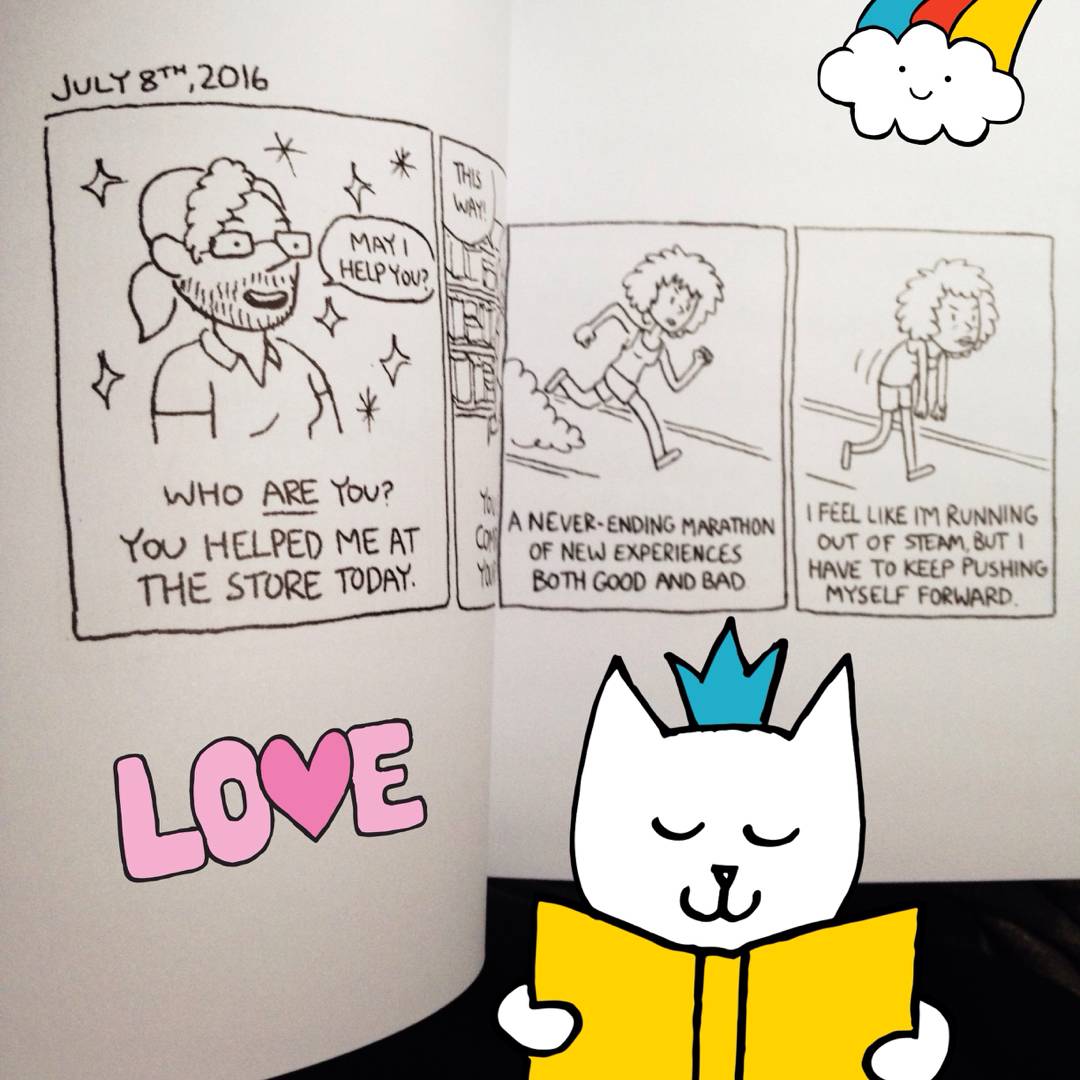 JULY 8TH, 2016
MAY I
HELP YOU?
WHO ARE YOU?
YOU HELPED ME AT
THE STORE TODAY.
THIS
WAY!
A NEVER-ENDING MARATHON
OF NEW EXPERIENCES
BOTH GOOD AND BAD.
I FEEL LIKE I'M RUNNING
OUT OF STEAM, BUT I
HAVE TO KEEP PUSHING
MYSELF FORWARD.
LOVE